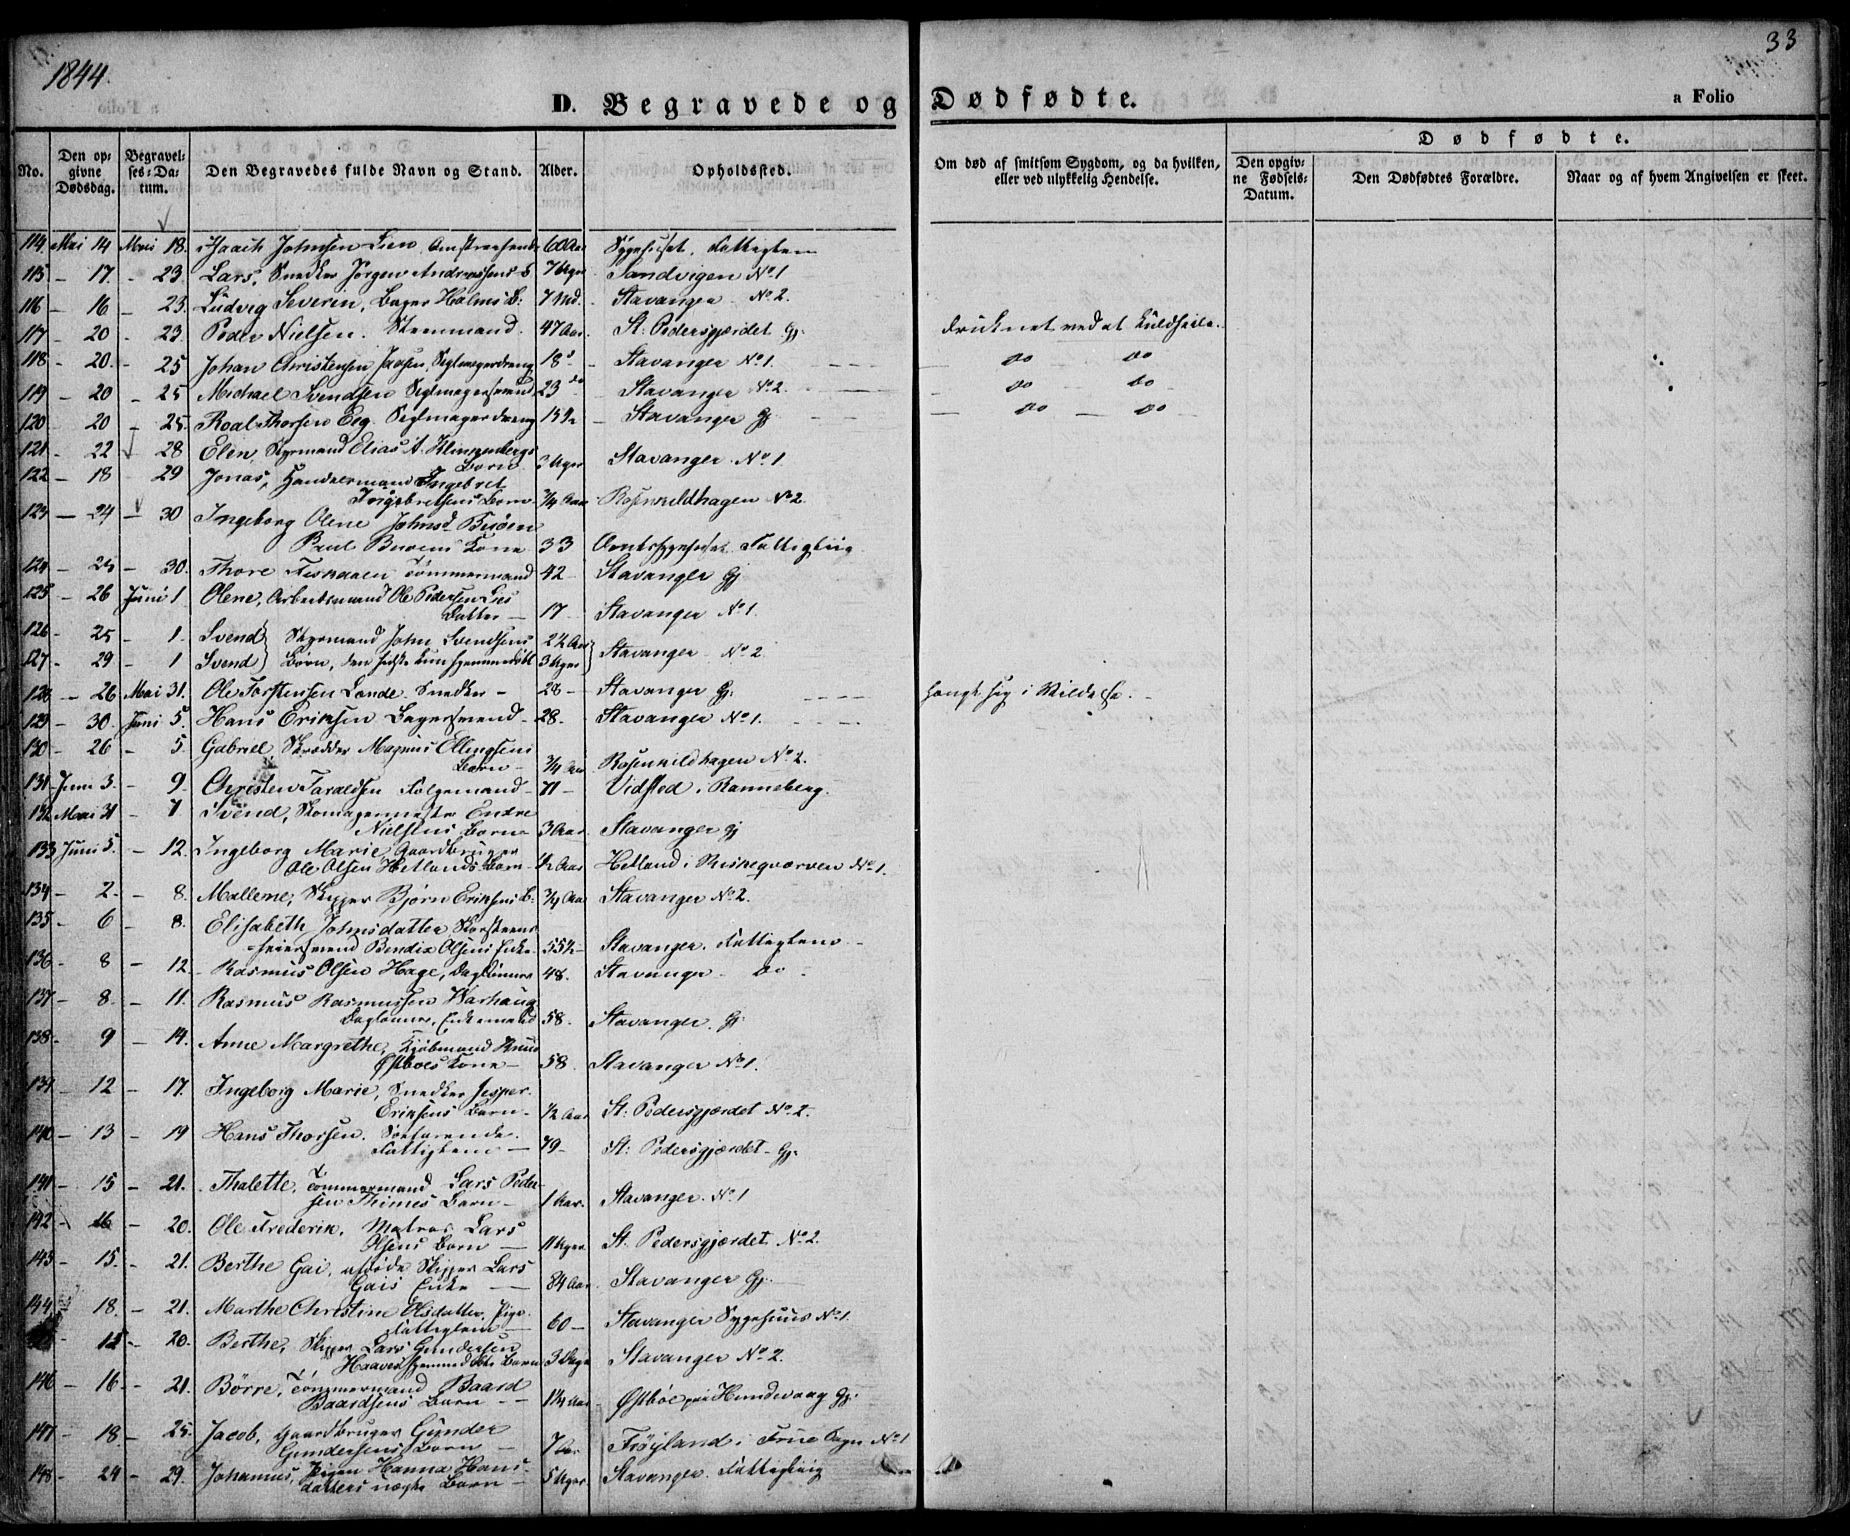 1844.
33
D. Begravede og Dødfødte.
a Folio
No.
Den opgivne Dødsdag.
Begravelses-Datum.
Den Begravedes fulde Navn og Stand.
Alder.
Opholdssted.
Om død af smitsom Sygdom, og da hvilken, eller ved ulykkelig Hendelse.
Dødfødte.
Den opgivne Fødsels-Datum.
Den Dødfødtes Forældre.
Naar og af hvem Angivelsen er skeet.
114 Mai 14 Mai 18. Johnsen Lien 60 Aar Sygehuset. Fattiglem
115 - 17. - 23. Lars, Snedker Jørgen Andreassens B 7 Uger Sandvigen No 1
116 - 16 - 23. Ludvig Severin, Bager Holms B: 7 Md. Stavanger No 2.
117 - 20 - 23. Peder Nielsen. 47 Aar. St: Pedersgjærdet Gj: druknet ved at Kuldseile.
118 - 20. - 25 Johan Christensen Seglmagerdreng 18 Stavanger No 1. do do
119 - 20 - 25 Michael Svendsen Seglmagersvend 23 do Stavanger No 2. do do
120 - 20 - 25. Roal Thorsen Eeg. Seglmagerdreng 15½ Stavanger Gj do do
121 - 22 - 28 Elen, Styrmand Elias A. Klingenbergs
Barn 3 Uger Stavanger No 1
122 - 18 29 Jonas, Handelsmand Ingebret
Ingebretsens Barn ¾ Aar Rosenkildhagen No 2.
123 - 24 - 30 Ingeborg Olene Johnsd Buøen
Paul Buøens Kone 33 Amtssygehuset Fattiglem
124 - 25 - 30. Thore Tømmermand 42 Stavanger Gj
125 - 26 Juni 1 Olene, Arbeidsmand Ole Pedersen
Datter 17 Stavanger No 1.
126 - 25 - 1. Svend } Styrmand John Svendsens 2¼ Aar
127 - 29 - 1 Svend } Børn, den sidste kun hjemmedøbt 3 Uger } Stavanger No 2
128 - 26 Mai 31. Ole Torstensen Lande. Snedker 28 Stavanger Gj. hængt sig i Vildelse.
129 - 30. Juni 5. Hans Eriksen Bagersvend 28. Stavanger No 1.
130 - 26 - 5. Gabriel Skrædder Magnus Ellingsens
Barn ¾ Aar Rosenkildhagen No 2.
131 Juni 3. - 9. Christen Taraldsen Følgemand 71 Vidsted i Ranneberg.
132 Mai 31 - 7 Svend, Skomagermester Endre
Nielsens Barn 3 Aar Stavanger Gj
133 Juni 5. - 12. Ingeborg Marie, Gaardbruger
Ole Olsen Hetlands Barn ½ Aar Hetland i Riskeqværven No 1.
134 - 2. - 8. Mallene, Skipper Bjørn Eriksens B: ¾ Aar Stavanger No 2.
135 - 6 - 8. Elisabeth Johnsdatter, Skorsteens
feiersvend Bendix Olsens Enke 55½ Stavanger. Fattiglem
136 - 8 - 12 Rasmus Olsen Hage, Daglønner 48. Stavanger do
137 - 8. - 11. Rasmus Rasmussen Warhaug
Daglønner, Enkemand 58. Stavanger. Gj:
138. - 9 - 14. Anne Margrethe, Kjøbmand Knud
Østboes Kone 58. Stavanger No 1.
139 - 12 - 17. Ingeborg Marie, Snedker Jesper
Eriksens Barn ½ Aar St: Pedersgjærdet No 2.
140 - 13 - 19 Hans Thorsen. Søefarende.
Fattiglem 79 St: Pedersgjærdet Gj.
141 - 15 - 21. Thalette, Tømmermand Lars Peder-
sen Thimes Barn 1 Aar. Stavanger. No 1
142 - 16 - 20. Ole Frederik, Matros Lars
Olsens Barn 11 Uger St. Pedersgjærdet No 2.
143 - 15. - 21. Berthe Gai, afdøde Skipper Lars
Gais Enke 84 Aar Stavanger Gj.
144. - 18. - 21. Marthe Christine Olsdatter, Pige.
Fattiglem 60 Stavanger Sygehuus No 1
12 - 20. Berthe, Skipper Lars Gundersen
Haaves hjemmedøbte Barn 3 Dage Stavanger No 2.
146 - 16 - 21. Børre, Tømmermand Baard
Baardsens Barn 1¼ Aar Østbøe paa Hundevaag Gj.
147 - 18. - 25. Jacob, Gaardbruger Gunder
Gundersens Barn 7 Frøyland i Frue Sogn No 1
148 - 24 - 29. Johannes, Pigen Hanna Hans-
datters uægte Barn 5 Uger Stavanger. Fattiglem